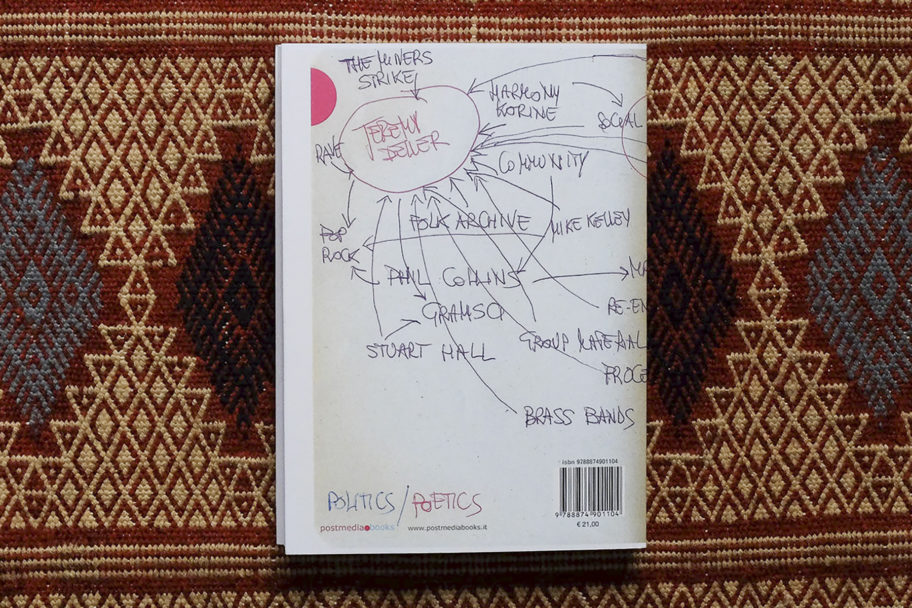 THE MINERS
STRIKE
HARMONY
KORINE
SOCIAL
JEREMY
DELLER
RAVE
COMMUNITY
FOLK ARCHIVE
MIKE KELLEY
POP
ROCK
PHIL COLLINS
GRAMSCI
RE-EN
STUART HALL
GROUP MATERIAL
PROCE
BRASS BANDS
isbn 9788874901104
POLITICS / POETICS
9 788874 901104
postmedia books www.postmediabooks.it
€ 21,00